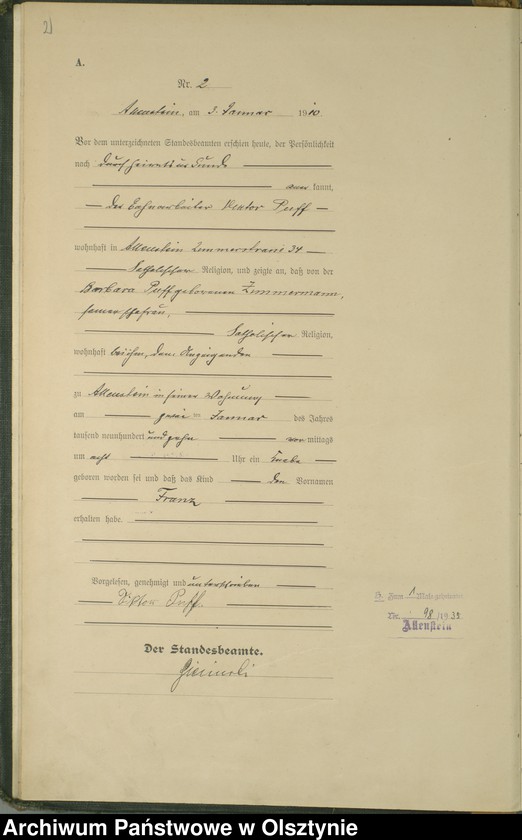 2)
A.
Nr. 2
Allenstein, am 3. Januar 1910
Vor dem unterzeichneten Standesbeamten erschien heute, der Persönlichkeit
nach durch Heiratsurkunde
aner kannt,
der Bahnarbeiter Viktor Puff
wohnhaft in Allenstein Zimmerstraße 34
katholischer Religion, und zeigte an, daß von der
Barbara Puff geborenen Zimmermann,
seiner Ehefrau,
katholischer Religion,
wohnhaft bei ihm, dem Anzeigenden
zu Allenstein in seiner Wohnung
am Januar des Jahres
tausend neunhundert und zehn vor mittags
um acht Uhr ein Knabe
geboren worden sei und daß das Kind den Vornamen
Franz
erhalten habe.
Vorgelesen, genehmigt und unterschrieben
Viktor Puff.
Der Standesbeamte.
Zum 1. Male
Nr. 98/1932
Allenstein
Archiwum Państwowe w Olsztynie